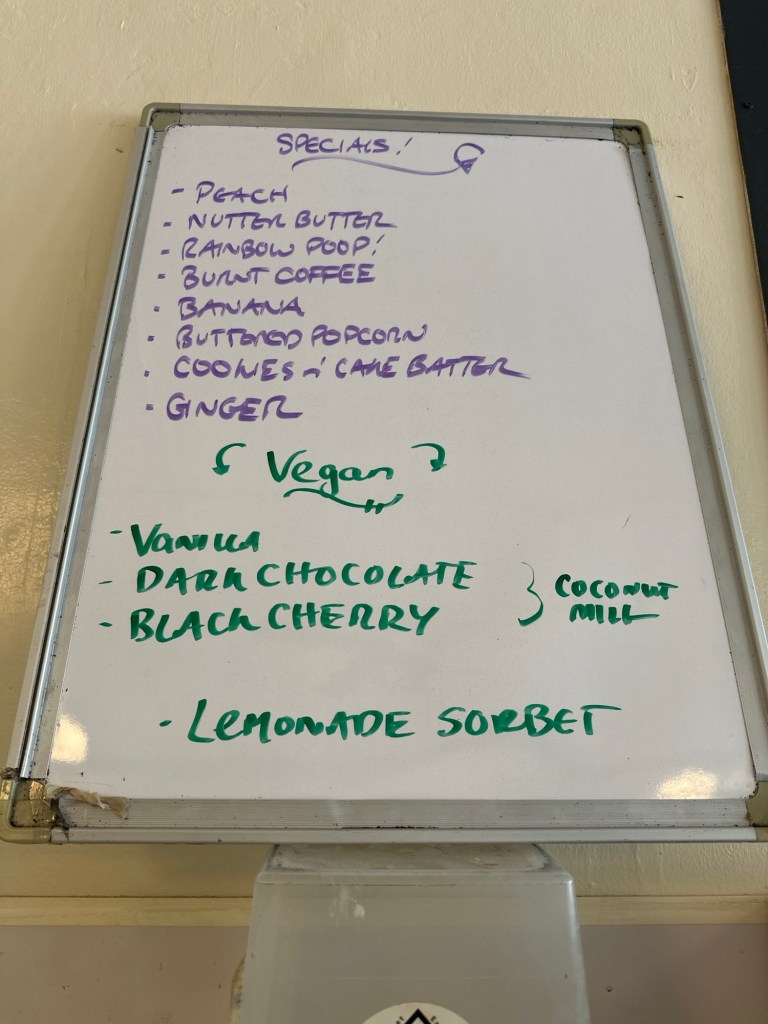 SPECIALS!
- PEACH
- NUTTER BUTTER
- RAINBOW POOP!
- BURNT COFFEE
- BANANA
- BUTTERED POPCORN
- COOKIES n' CAKE BATTER
- GINGER
Vegan
- VANILLA
- DARK CHOCOLATE
- BLACK CHERRY
} COCONUT
MILK
- LEMONADE SORBET